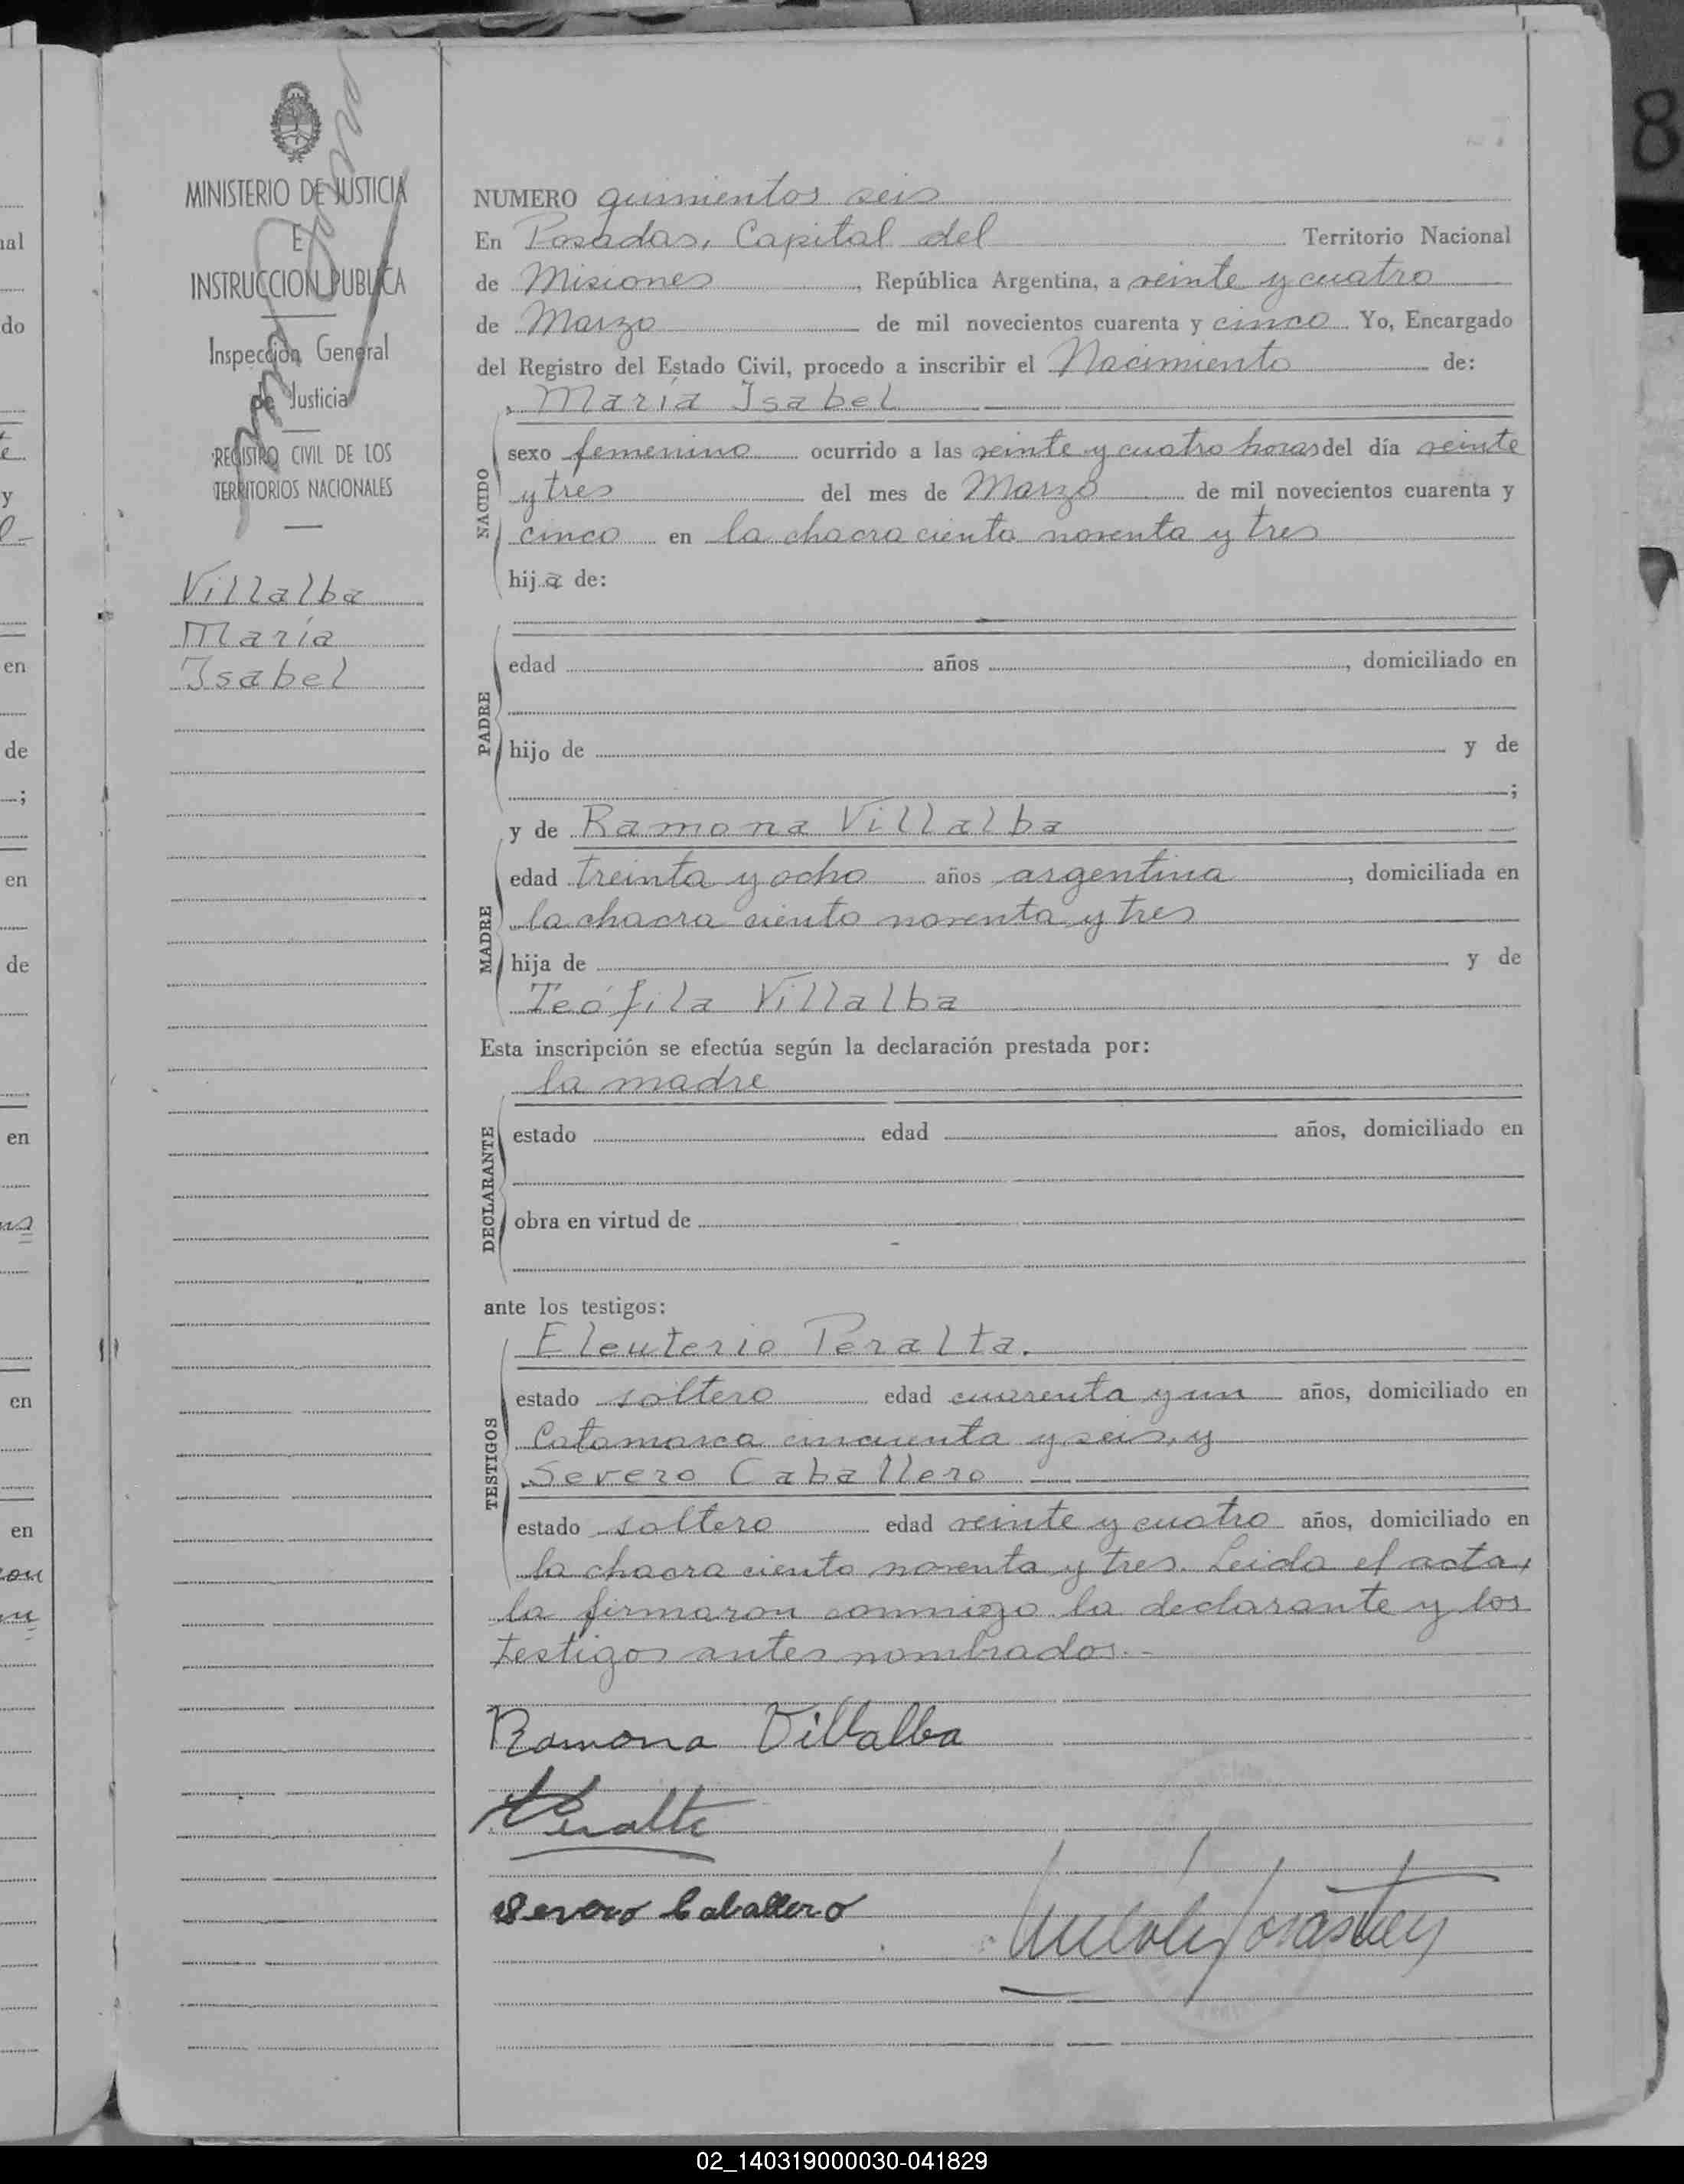 MINISTERIO DE JUSTICIA
E
INSTRUCCION PUBLICA
Inspección General
de Justicia
REGISTRO CIVIL DE LOS
TERRITORIOS NACIONALES
Villalba
María
Isabel
NUMERO quinientos seis
En Posadas, Capital del Territorio Nacional
de Misiones, República Argentina, a veinte y cuatro
de Marzo de mil novecientos cuarenta y cinco. Yo, Encargado
del Registro del Estado Civil, procedo a inscribir el Nacimiento de:
María Isabel
NACIDO
sexo femenino ocurrido a las veinte y cuatro horas del día veinte
y tres del mes de Marzo de mil novecientos cuarenta y
cinco en la chacra ciento noventa y tres
hija de:
PADRE
edad años , domiciliado en
hijo de y de
;
y de Ramona Villalba
MADRE
edad treinta y ocho años argentina, domiciliada en
la chacra ciento noventa y tres
hija de y de
Teófila Villalba
Esta inscripción se efectúa según la declaración prestada por:
la madre
DECLARANTE
estado edad años, domiciliado en
obra en virtud de
ante los testigos:
Eleuterio Peralta.
TESTIGOS
estado soltero edad cuarenta y un años, domiciliado en
Catamarca cincuenta y seis, y
Severo Caballero
estado soltero edad veinte y cuatro años, domiciliado en
la chacra ciento noventa y tres. Leida el acta,
la firmaron conmigo la declarante y los
testigos antes nombrados.-
Ramona Villalba
Peralta
Severo Caballero
8
02_140319000030-041829